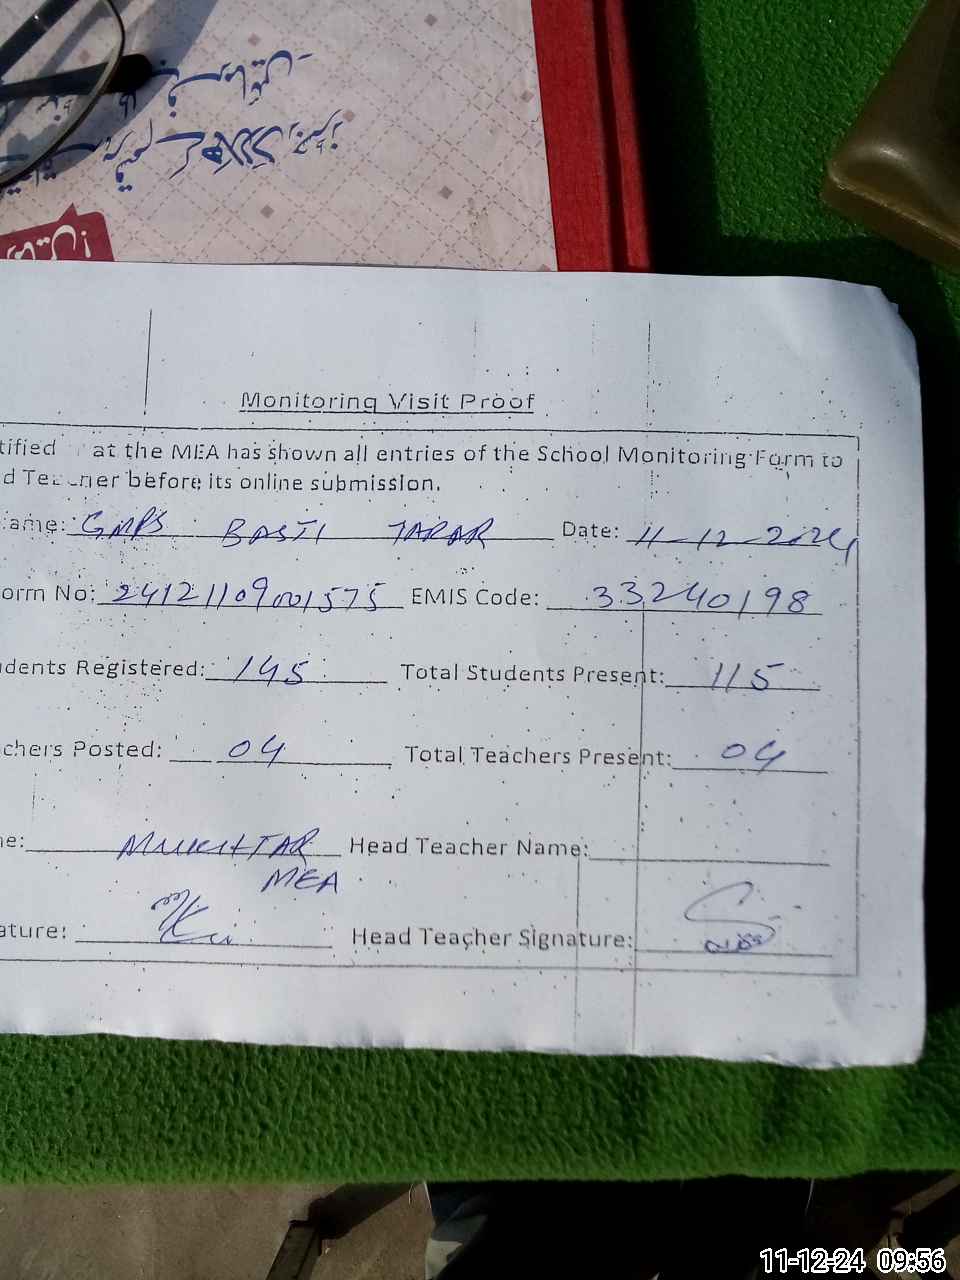 Monitoring Visit Proof
tified at the MEA has shown all entries of the School Monitoring Form to
d Teacher before its online submission.
ame: GMPS BASTI TARAR Date: 11-12-2024
orm No: 24121109001575 EMIS Code: 33240198
dents Registered: 145 Total Students Present: 115
chers Posted: 04 Total Teachers Present: 04
e: MUKHTAR Head Teacher Name:
MEA
ature: Head Teacher Signature:
11-12-24 09:56